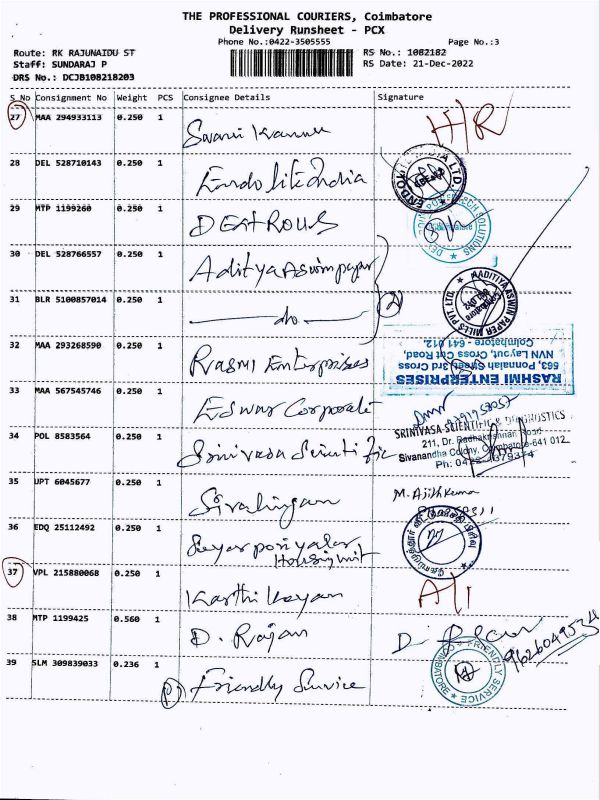 THE PROFESSIONAL COURIERS, Coimbatore
Delivery Runsheet - PCX
Phone No.:0422-3505555 Page No.:3
Route: RK RAJUNAIDU ST RS No.: 1082182
Staff: SUNDARAJ P RS Date: 21-Dec-2022
DRS No.: DCJB108218203
S No Consignment No Weight PCS Consignee Details Signature
27 MAA 294933113 0.250 1
H/R
28 DEL 528710143 0.250 1
Endolite India
ENDOLITE INDIA LTD.
29 MTP 1199260 0.250 1
30 DEL 528766557 0.250 1
Aditya Aswin paper
31 BLR 5100857014 0.250 1
do
ADITIYA ASWIN PAPER MILLS PVT LTD.
(2)
32 MAA 293268590 0.250 1
Rasmi Enterprises
RASHMI ENTERPRISES
563, Ponnaiah Street, 3rd Cross
NVN Layout, Cross Cut Road,
Coimbatore - 641 012.
33 MAA 567545746 0.250 1
Eswar Corporate
34 POL 8583564 0.250 1
Srinivasa Scientific
SRINIVASA SCIENTIFIC & DIAGNOSTICS
211, Dr. Radhakrishnan Road
Sivanandha Colony, Coimbatore-641 012
35 UPT 6045677 0.250 1
Sivalingam
M. Ajithkumar
36 EDQ 25112492 0.250 1
Housing Unit
37 VPL 215880068 0.250 1
Karthikeyan
A/1
38 MTP 1199425 0.560 1
D. Rajan
9626049534
39 SLM 309839033 0.236 1
(P) Friendly Service
FRIENDLY SERVICE
COIMBATORE